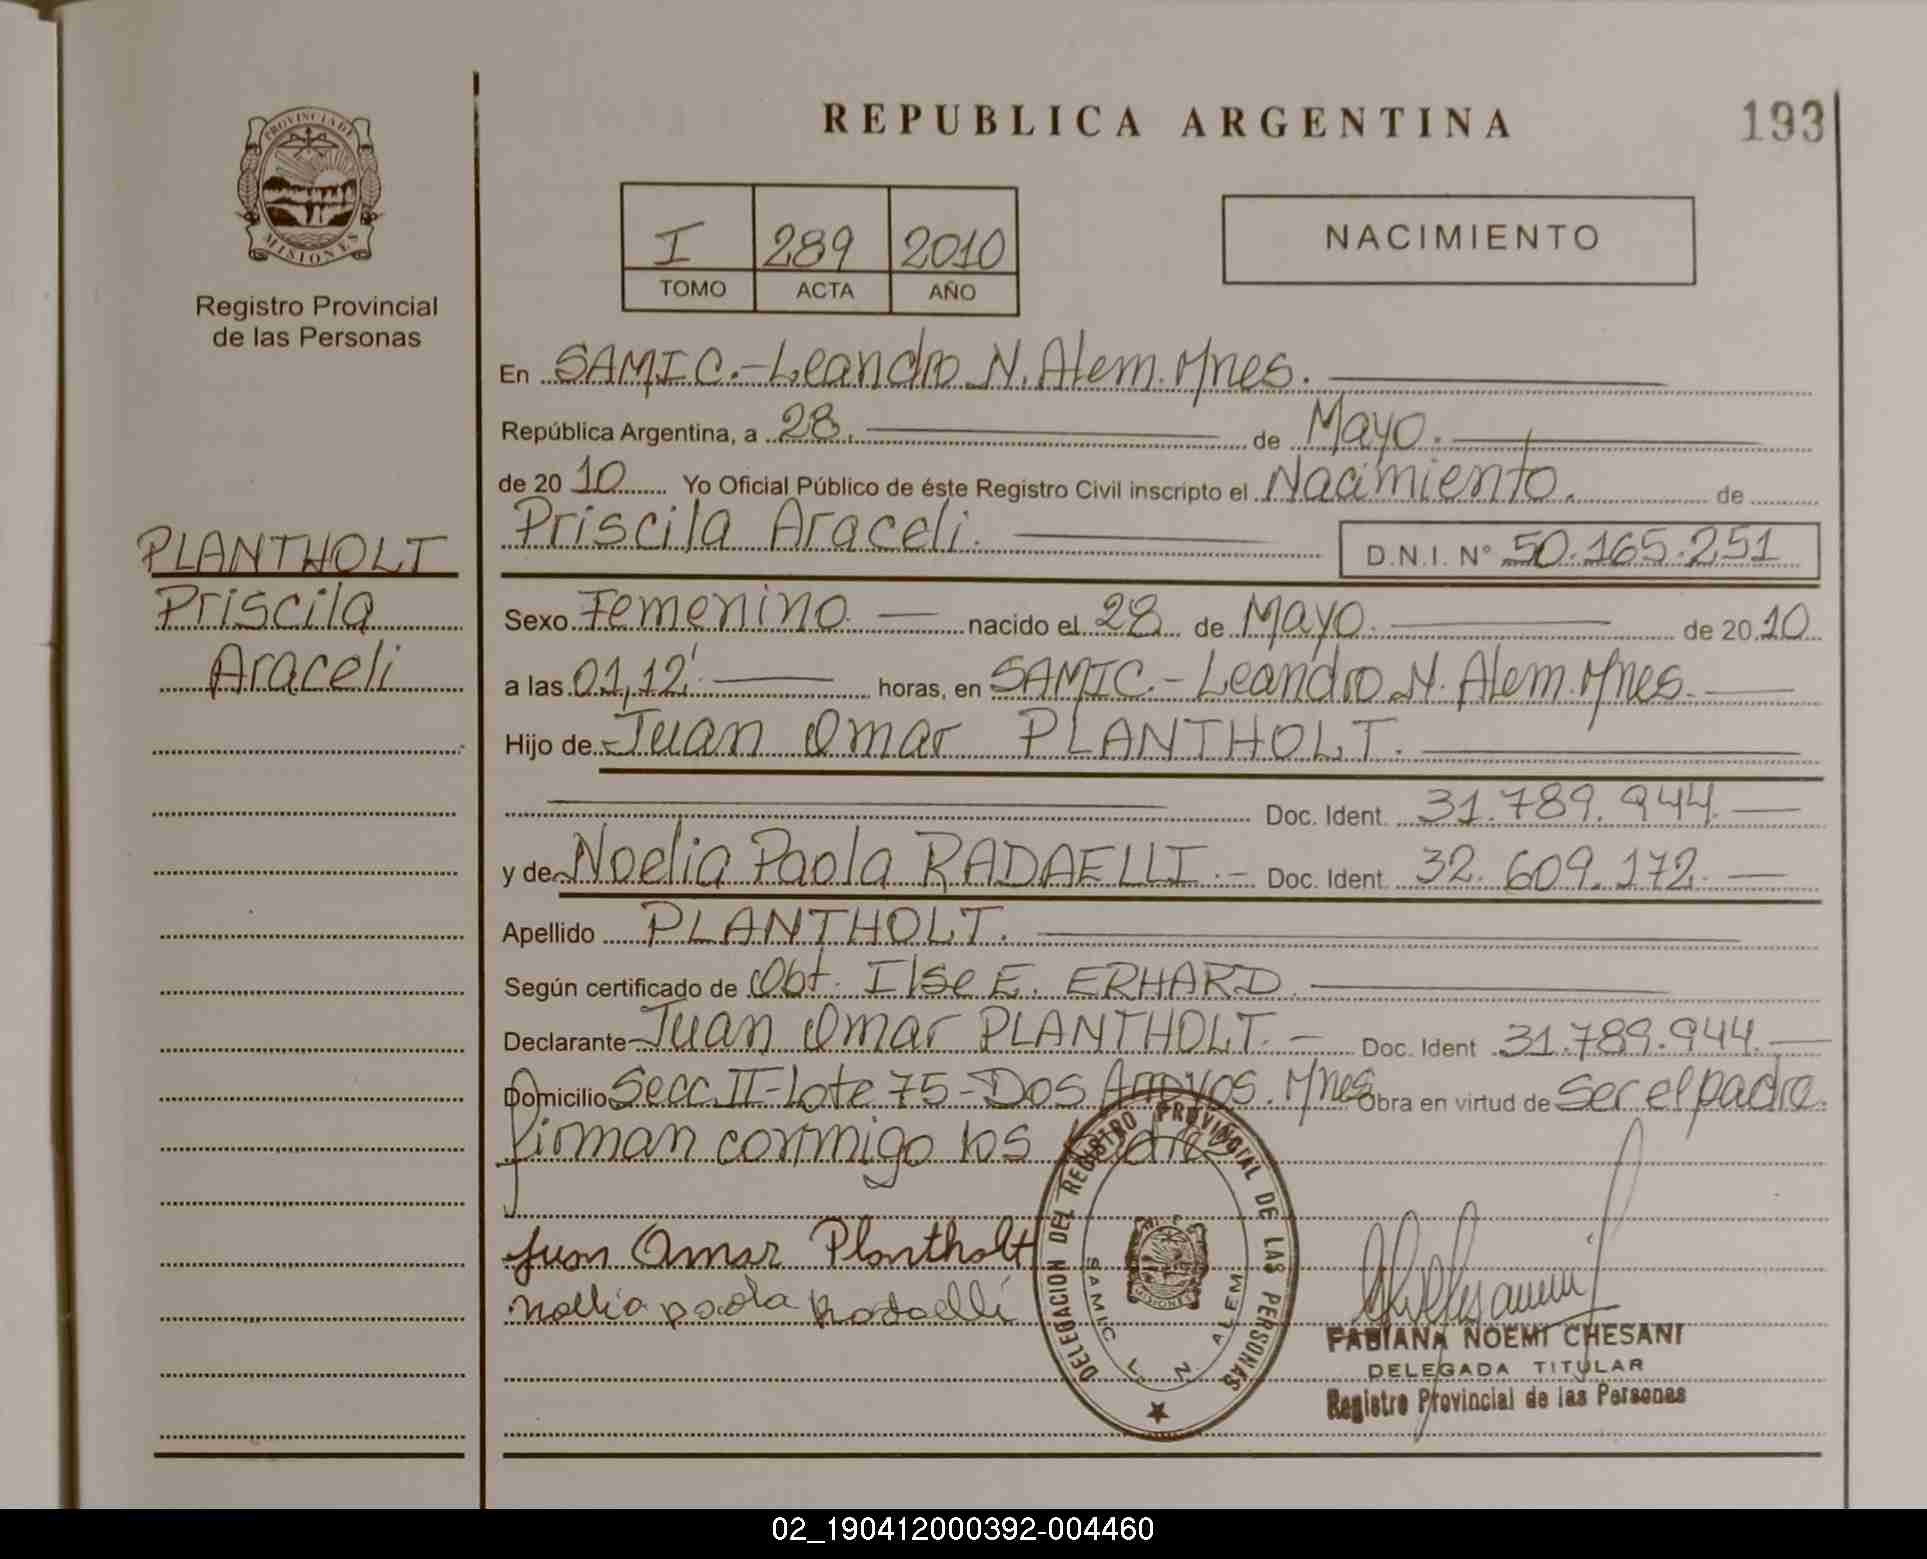 REPUBLICA ARGENTINA
193
PROVINCIA DE
MISIONES
Registro Provincial
de las Personas
I 289 2010
TOMO ACTA AÑO
NACIMIENTO
En SAMIC.-Leandro N. Alem. Mnes.
República Argentina, a 28. de Mayo.
de 2010 Yo Oficial Público de éste Registro Civil inscripto el Nacimiento. de
Priscila Araceli. D.N.I. N° 50.165.251
PLANTHOLT
Priscila
Araceli
Sexo Femenino nacido el 28 de Mayo. de 2010
a las 01,12' horas, en SAMIC.- Leandro N. Alem. Mnes.
Hijo de Juan Omar PLANTHOLT.
Doc. Ident. 31.789.944.
y de Noelia Paola RADAELLI.- Doc. Ident. 32.609.172.
Apellido PLANTHOLT.
Según certificado de Obt. Ilse E. ERHARD.
Declarante Juan Omar PLANTHOLT.- Doc. Ident 31.789.944.
Domicilio Secc. II-Lote 75-Dos Arroyos. Mnes Obra en virtud de ser el padre.
firman conmigo los padres
Juan Omar Plantholt
noelia paola Radaelli
DELEGACION DEL REGISTRO PROVINCIAL DE LAS PERSONAS
SAMIC L. N. ALEM
MISIONES
FABIANA NOEMI CHESANI
DELEGADA TITULAR
Registro Provincial de las Personas
02_190412000392-004460